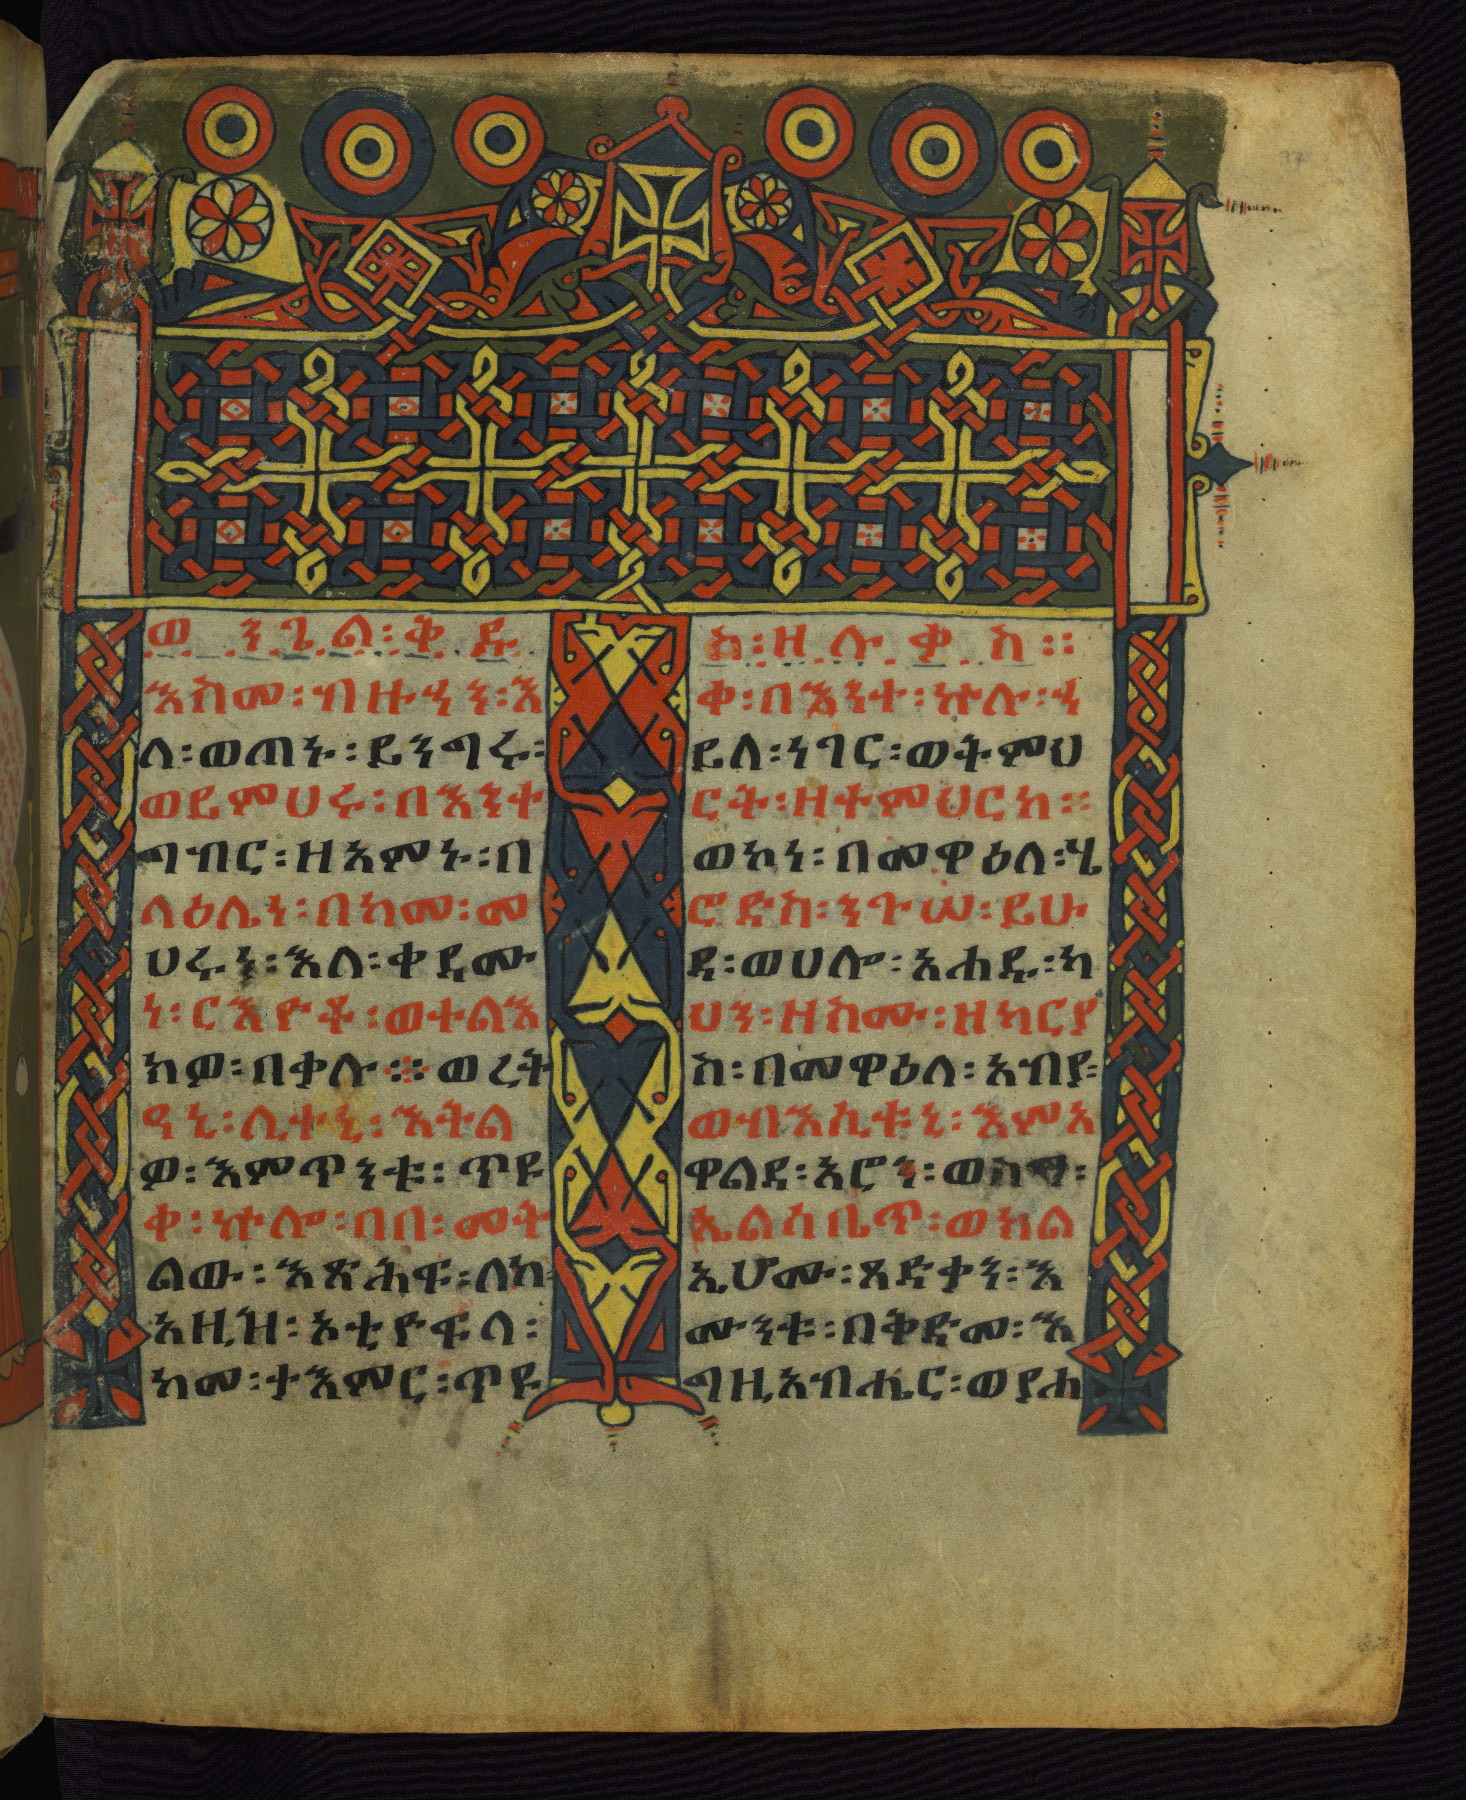 ወንጌል፡ቅዱ
እስመ፡ብዙኃን፡እ
ለ፡ወጠኑ፡ይንግሩ፡
ወይምሀሩ፡በእንተ
ግብር፡ዘአምኑ፡በ
ላዕሌነ፡በከመ፡መ
ሀሩነ፡እለ፡ቀዲሙ
ነ፡ርእዮቶ፡ወተልእ
ክዎ፡በቃሉ፨ወረት
ዓኒ፡ሊተኒ፡እትል
ዎ፡እምጥንቱ፡ጥዩ
ቀ፡ኵሎ፡በበ፡መት
ልው፡እጽሕፍ፡ለከ፡
አዚዝ፡ኦቲዮፍላ፡
ከመ፡ተአምር፡ጥዩ
ስ፡ዘሉቃስ፡፡
ቀ፡በእንተ፡ኵሉ፡ኃ
ይለ፡ነገር፡ወትምህ
ርት፡ዘተምህርከ፡፡
ወኮነ፡በመዋዕለ፡ሄ
ሮድስ፡ንጉሠ፡ይሁ
ዳ፡ወሀሎ፡አሐዱ፡ካ
ህን፡ዘስሙ፡ዘካርያ
ስ፡በመዋዕለ፡አብያ፡
ወብእሲቱኒ፡እምአ
ዋልደ፡አሮን፡ወስማ፡
ኤልሳቤጥ፡ወክል
ኤሆሙ፡ጻድቃን፡እ
ሙንቱ፡በቅድመ፡እ
ግዚአብሔር፡ወየሐ